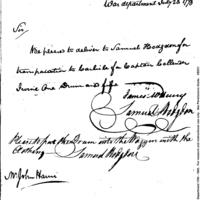 War department July 28 179
Sir,
Be pleased to deliver to Samuel Hodgdon for
transportation to Carlisle for Captain Callender
Irvine One Drum and fife
James McHenry
Samuel Hodgdon
Please to put the Drum into the Waggon with the
Clothing Samuel Hodgdon
Mr John Harris